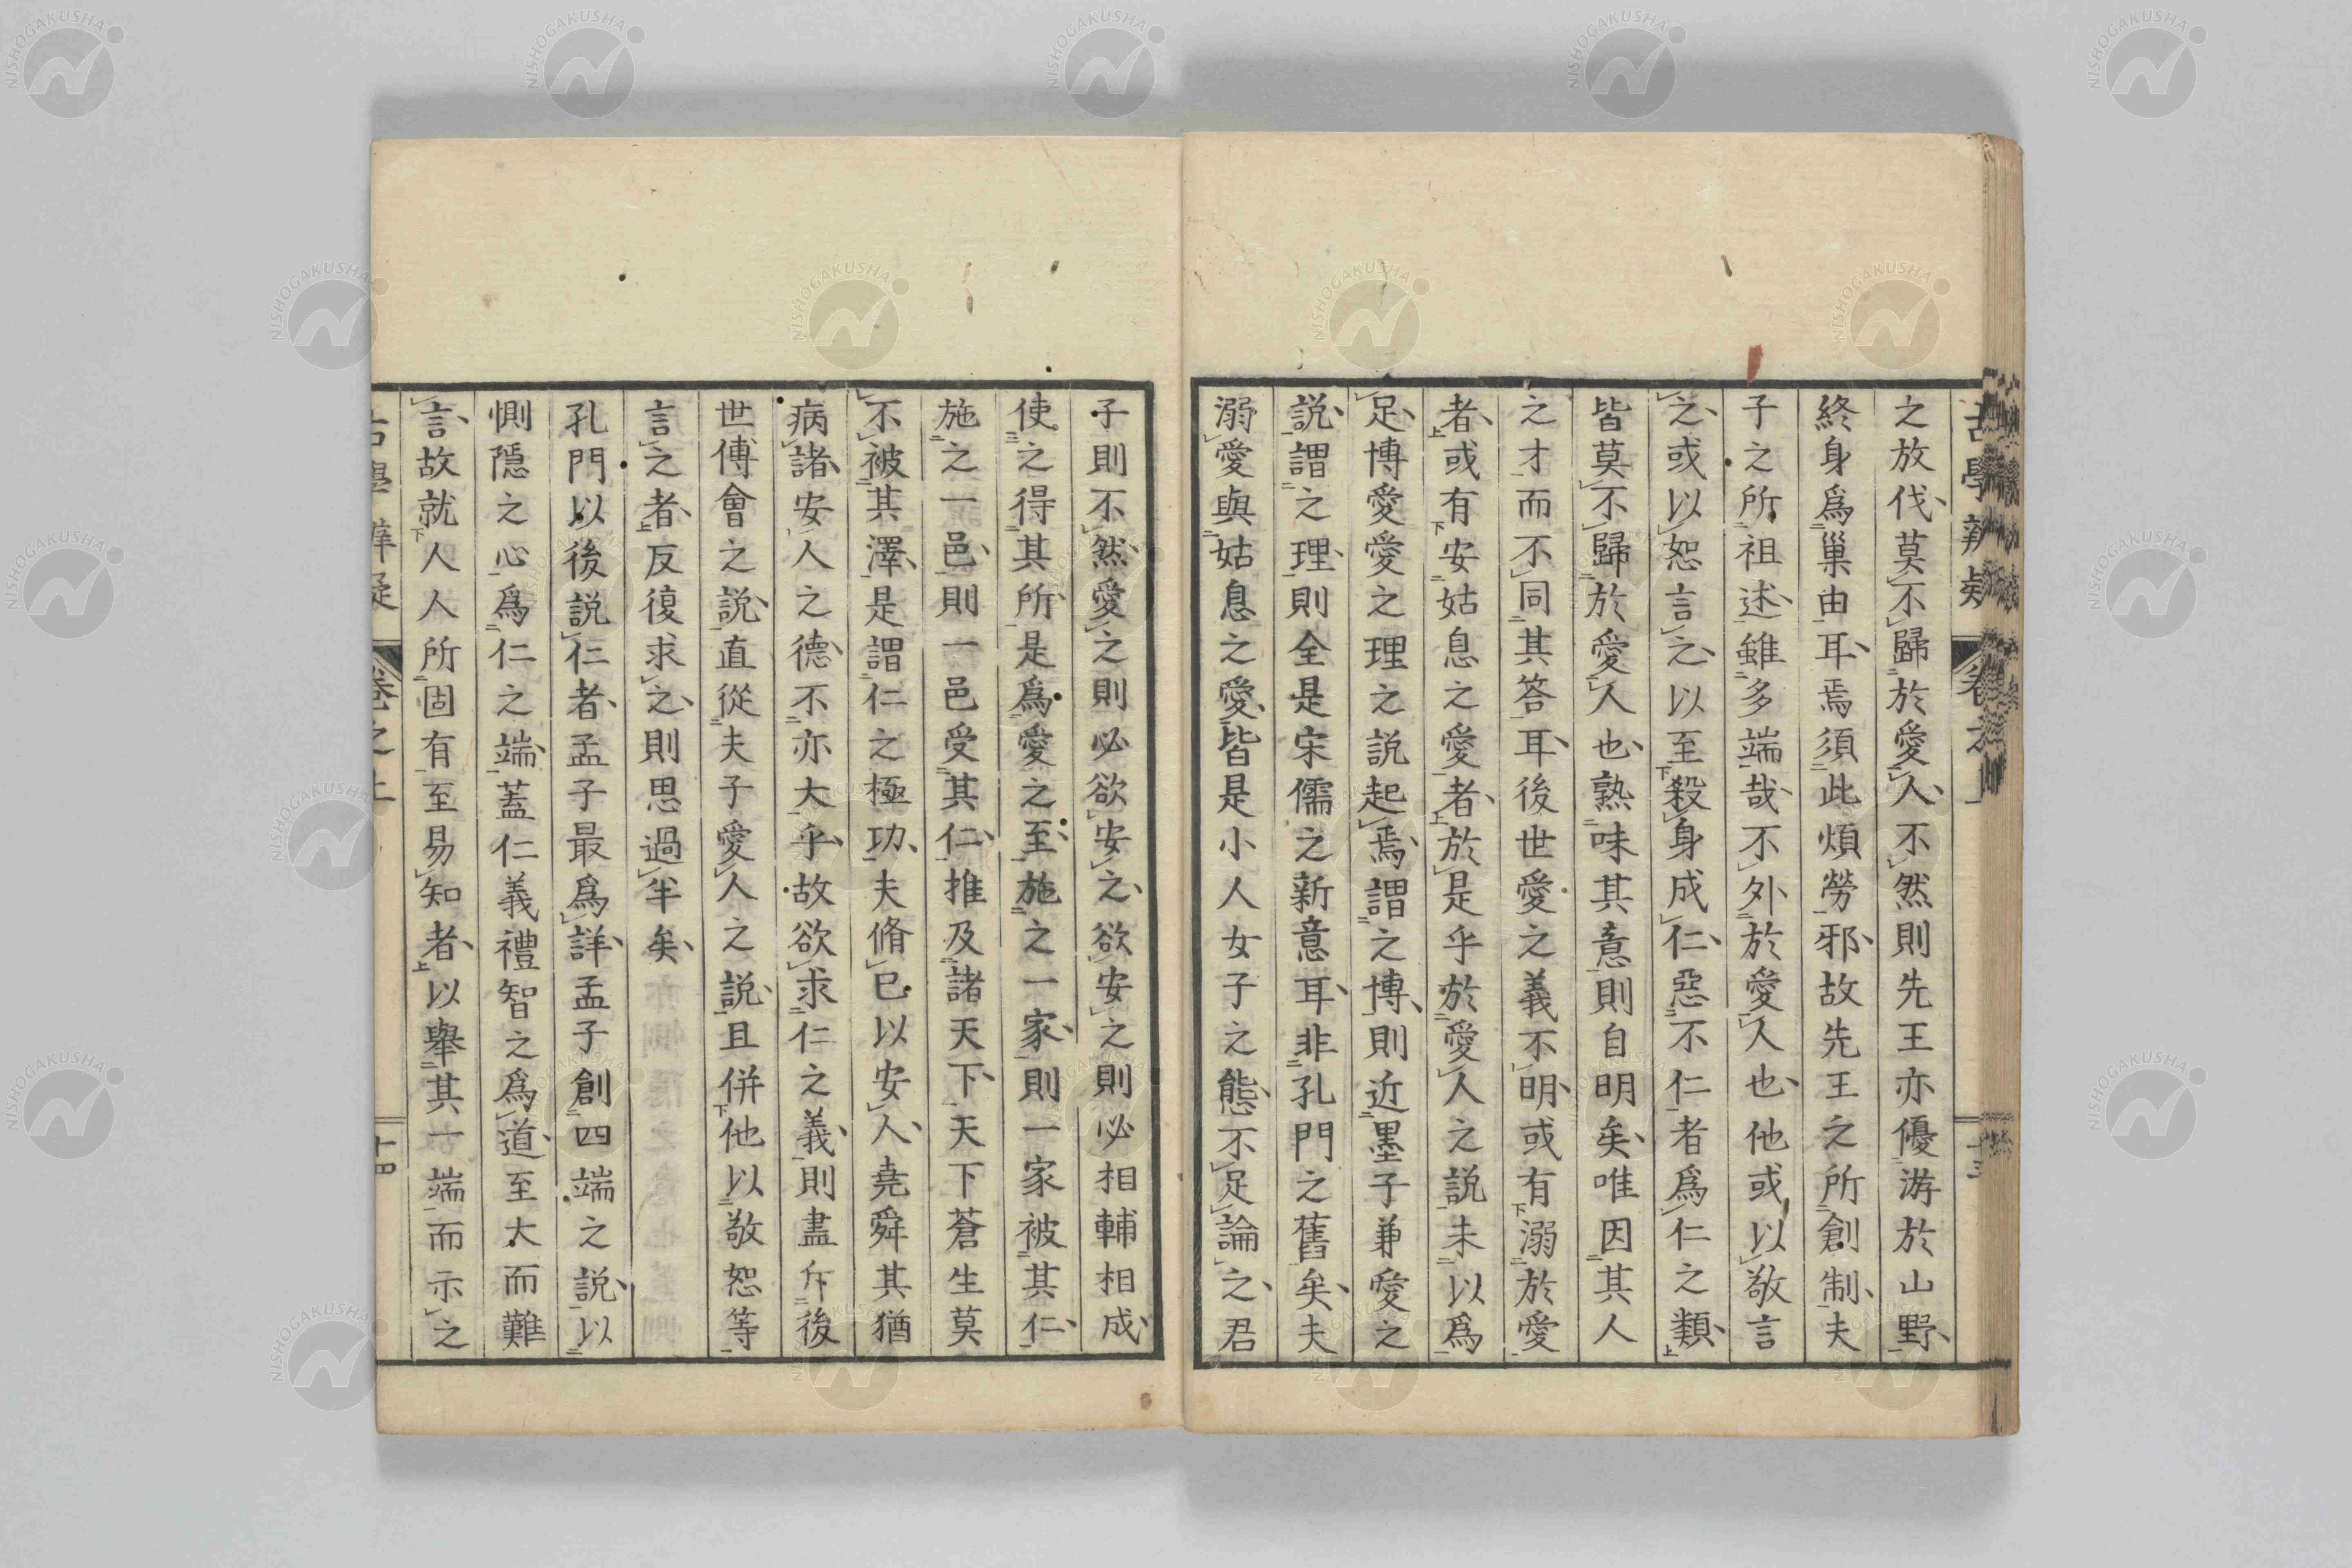 之放伐莫不歸於愛人不然則先王亦優游於山野
終身爲巢由耳焉須此煩勞邪故先王之所創制夫
子之所祖述雖多端哉不外於愛人也他或以敬言
之或以恕言之以至殺身成仁惡不仁者爲仁之類
皆莫不歸於愛人也熟味其意則自明矣唯因其人
之才而不同其答耳後世愛之義不明或有溺於愛
者或有安姑息之愛者於是乎於愛人之説未以爲
足博愛愛之理之説起焉謂之博則近墨子兼愛之
説謂之理則全是宋儒之新意耳非孔門之舊矣夫
溺愛與姑息之愛皆是小人女子之態不足論之君
子則不然愛之則必欲安之欲安之則必相輔相成
使之得其所是爲愛之至施之一家則一家被其仁
施之一邑則一邑受其仁推及諸天下天下蒼生莫
不被其澤是謂仁之極功夫脩已以安人堯舜其猶
病諸安人之德不亦大乎故欲求仁之義則盡斥後
世傅會之説直從夫子愛人之説且併他以敬恕等
言之者反復求之則思過半矣
孔門以後説仁者孟子最爲詳孟子創四端之説以
惻隱之心爲仁之端蓋仁義禮智之爲道至大而難
言故就人人所固有至易知者以舉其一端而示之
古學辨疑
卷之上
十四